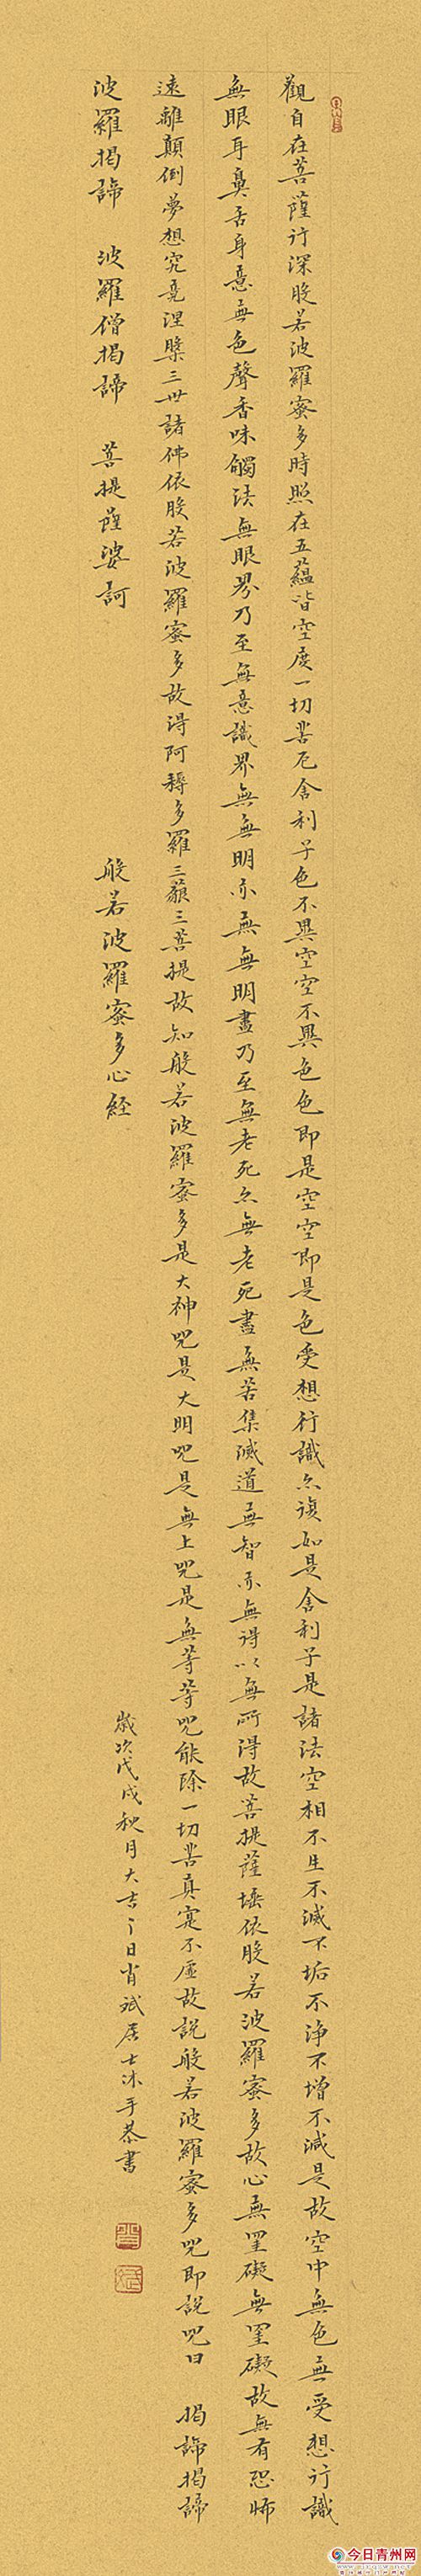 觀自在菩薩行深般若波羅蜜多時照在五蘊皆空度一切苦厄舍利子色不異空空不異色色即是空空即是色受想行識亦復如是舍利子是諸法空相不生不滅不垢不淨不增不減是故空中無色無受想行識
無眼耳鼻舌身意無色聲香味觸法無眼界乃至無意識界無無明亦無無明盡乃至無老死亦無老死盡無苦集滅道無智亦無得以無所得故菩提薩埵依般若波羅蜜多故心無罣礙無罣礙故無有恐怖
遠離顛倒夢想究竟涅槃三世諸佛依般若波羅蜜多故得阿耨多羅三藐三菩提故知般若波羅蜜多是大神咒是大明咒是無上咒是無等等咒能除一切苦真實不虛故說般若波羅蜜多咒即說咒曰 揭諦揭諦
波羅揭諦 波羅僧揭諦 菩提薩婆訶 般若波羅蜜多心経
歲次戊戌秋月大吉之日肖斌居士沐手恭書
今日青州网